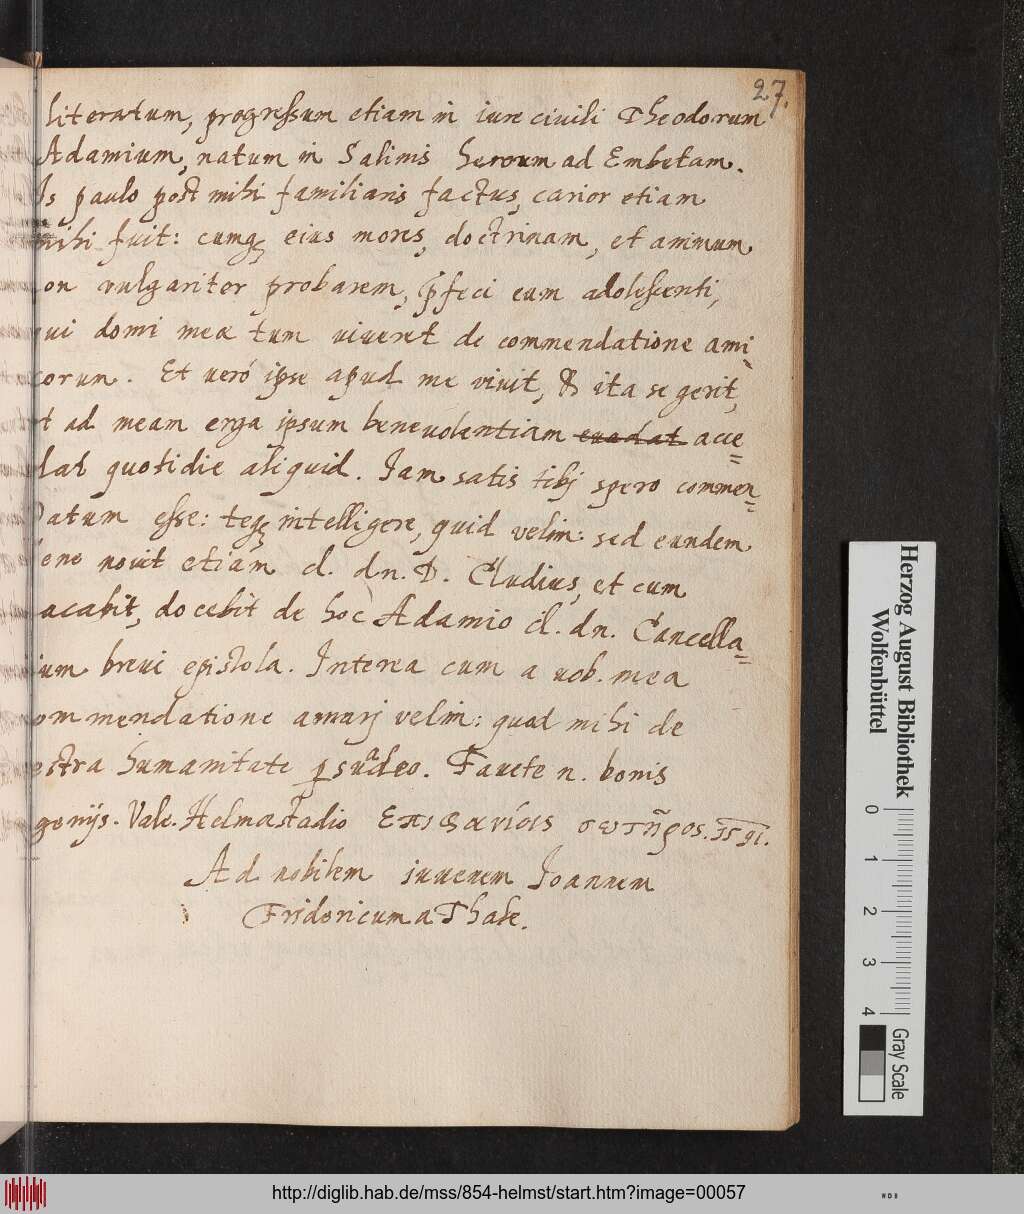 27.
literatum, progressum etiam in iure ciuili Theodorum
Adamium, natum in Salinis herorum ad Embetam.
Is paulo post mihi familiaris factus, carior etiam
mihi fuit: cumq; eius mores, doctrinam, et animum
on vulgariter probarem, p̃feci eum adolescenti,
ui domi meæ tum viueret de commendatione ami=
corum. Et veró ipse apud me vivit, & ita se gerit,
t ad meam erga ipsum beneuolentiam euadat acce=
dat quotidie aliquid. Iam satis tibj spero commen=
datum esse: teq; intelligere, quid velim. sed eundem
ene novit etiam cl. dn. D. Cludius, et cum
acabit, docebit de hoc Adamio cl. dn. Cancella=
ium breui epistola. Interea eum a vob. mea
ommendatione amarj velim: quod mihi de
estra humanitate psuadeo. Fauete n. bonis
genijs. Vale. Helmæstadio
σωτῆρος.
Ad nobilem iuuenem Ioannem
Fridericum a Thale.
Herzog August Bibliothek
Wolfenbüttel
0 1 2 3 4
Gray Scale
http://diglib.hab.de/mss/854-helmst/start.htm?image=00057